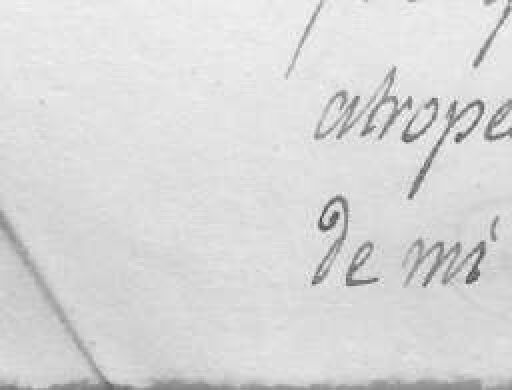 atrope
de mi